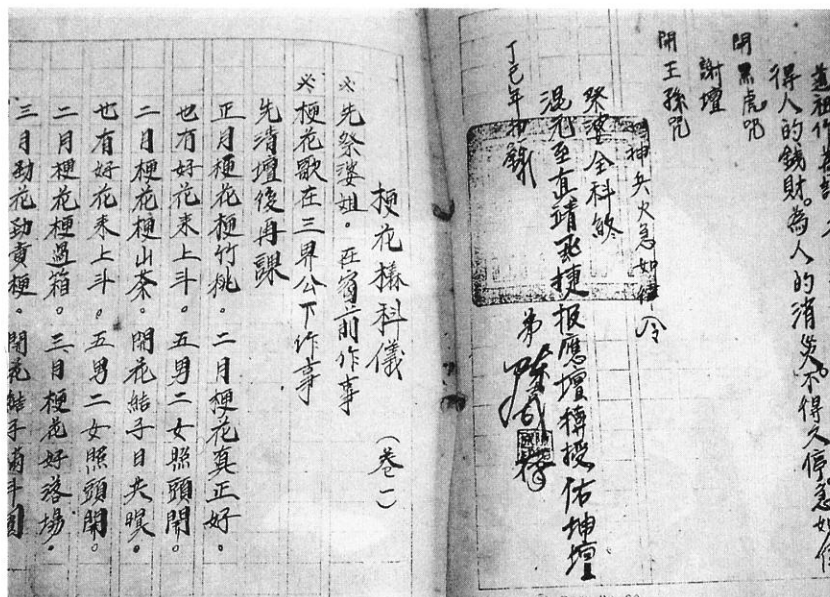 得人的錢財。為人的消災。不得久停。急如律
開黑虎咒
謝壇
開王孫咒
神兵火急如律令
祭婆全科終
混元至真靖飛捷報應壇轉授佑坤壇
丁巳年抄錄
弟
梗花樣科儀 (卷一)
※先祭婆姐。在宮前作事
※梗花歌在三界公下作事
先清壇後再課
正月梗花梗竹桃。二月梗花真正好。
也有好花來上斗。五男二女照頭開。
二月梗花梗山茶。開花結子日共暝。
也有好花來上斗。五男二女照頭開。
二月梗花梗過箱。三月梗花好落場。
三月劝花劝責梗。開花結子滿斗圓